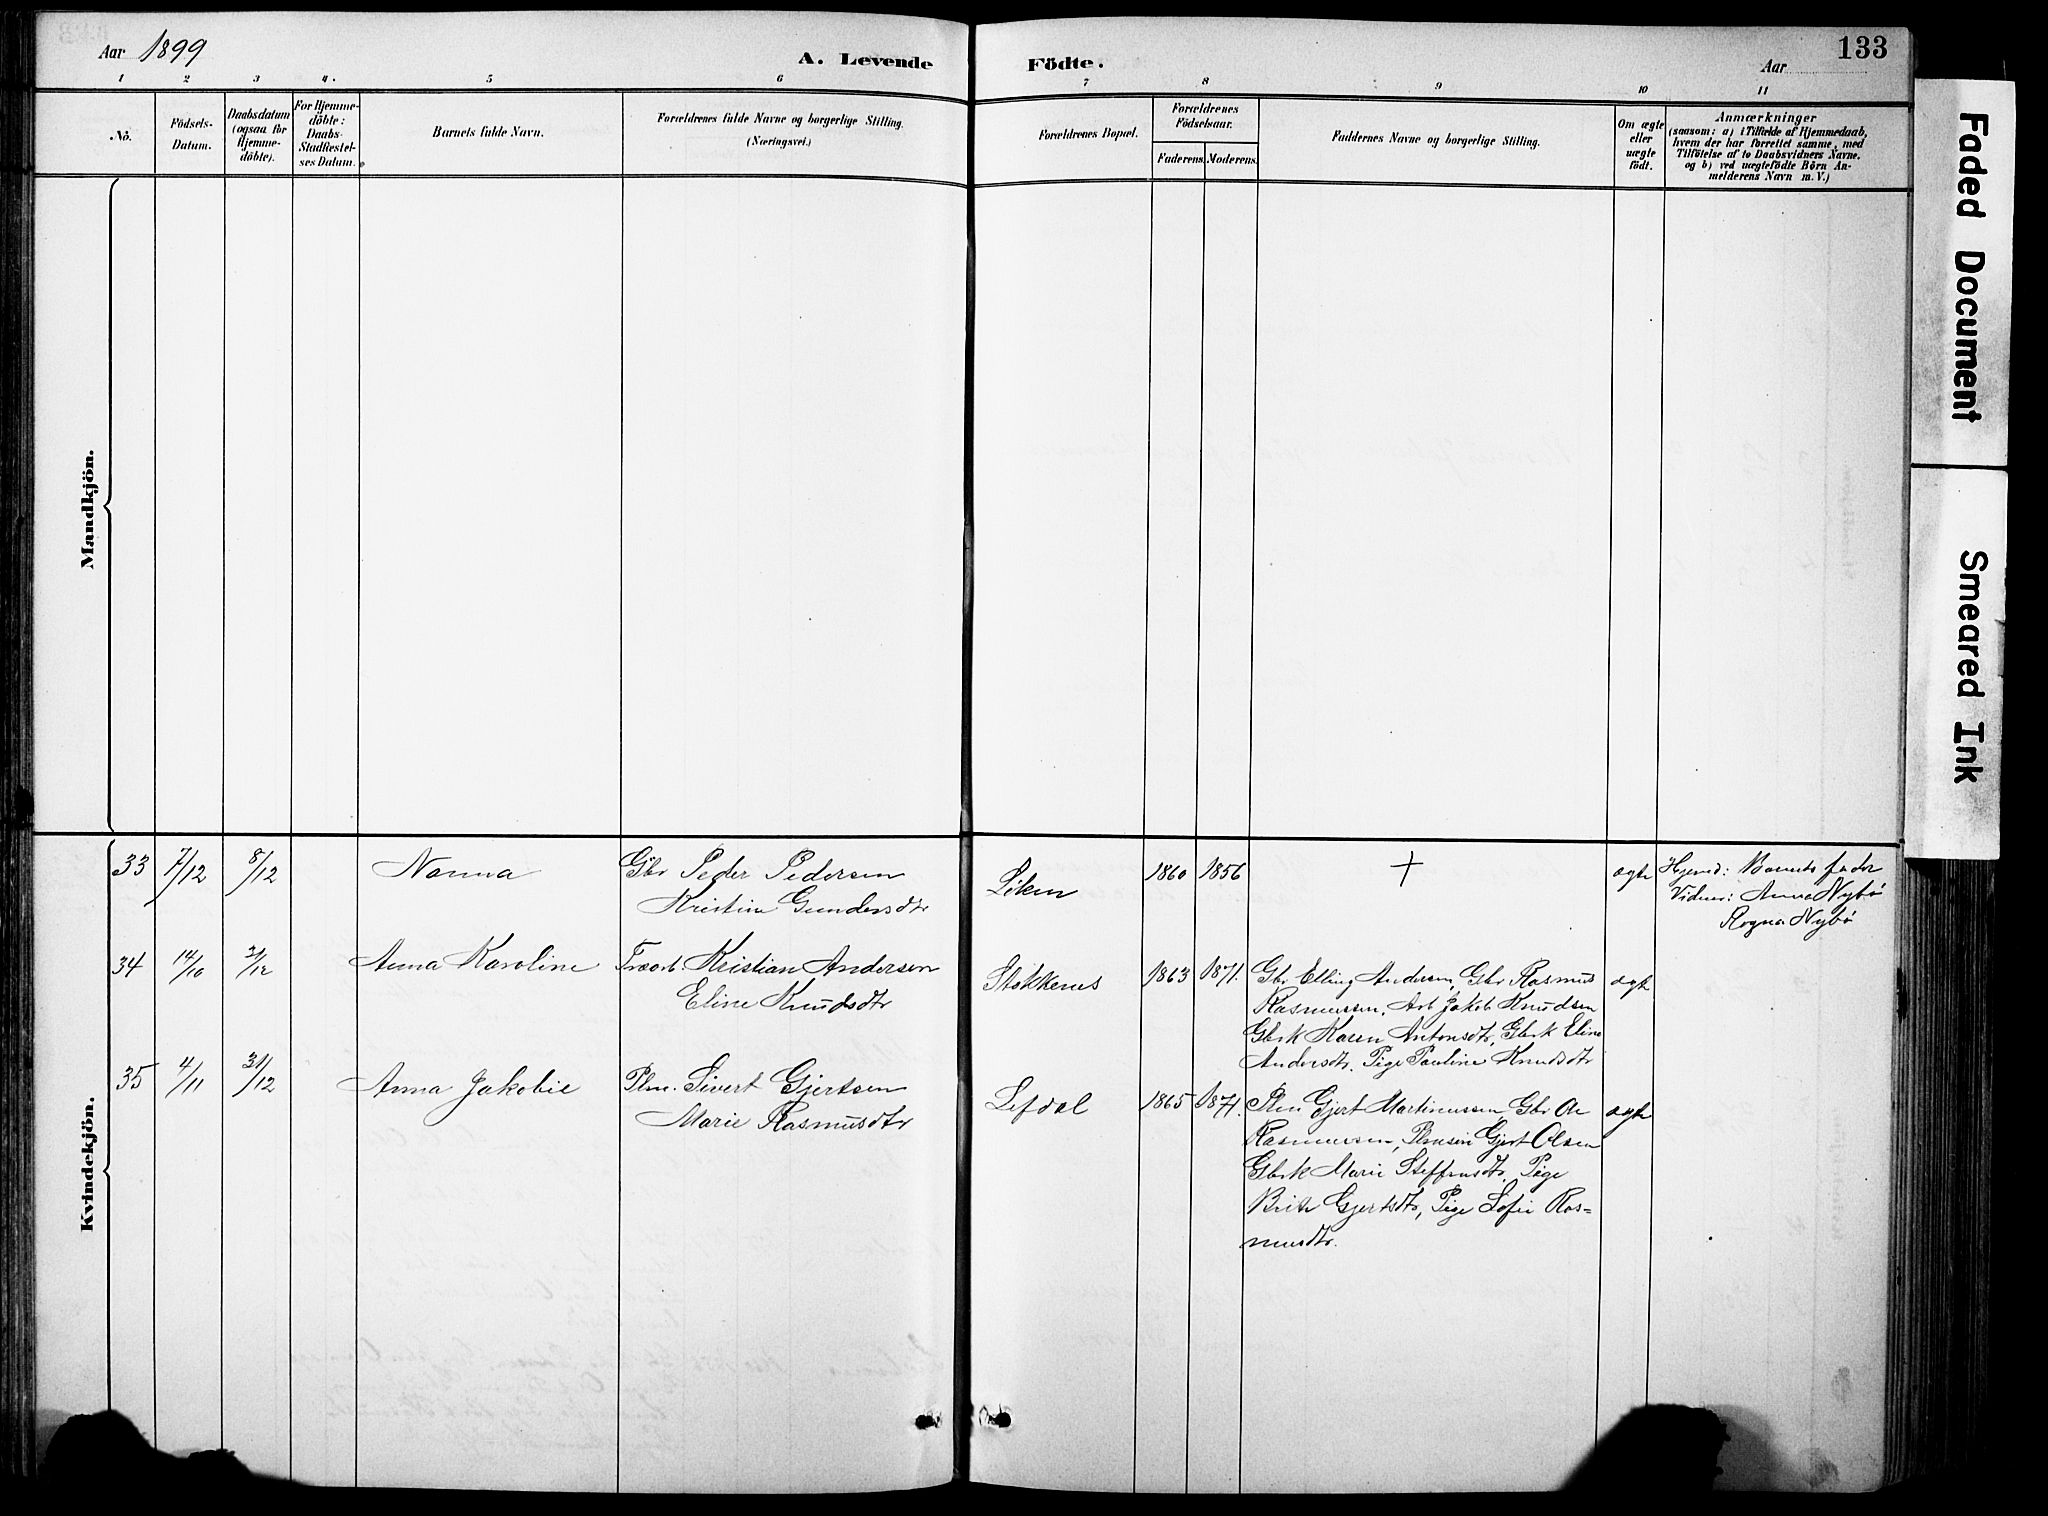 Aar 1899
A. Levende
Födte.
133
Aar
1 2 3 4. 5 6 7 8 9 10 11
No.
Födsels-
Datum.
Daabsdatum
(ogsaa for
Hjemme-
döbte).
For Hjemme-
döbte:
Daabs-
Stadfæstel-
ses Datum.
Barnets fulde Navn.
Forældrenes fulde Navne og borgerlige Stilling.
(Næringsvei.)
Forældrenes Bopæl.
Forældrenes
Födselsaar.
Faderens. Moderens.
Faddernes Navne og borgerlige Stilling.
Om ægte
eller
uægte
födt.
Anmærkninger
(saasom: a) i Tilfælde af Hjemmedaab,
hvem der har forrettet samme, med
Tilföielse af to Daabsvidners Navne,
og b) ved uægtefödte Börn An-
melderens Navn m. V.)
Mandkjön.
Kvindekjön.
33 7/12 8/12 Nanna Gbr Peder Pedersen
Kristine Gundersdtr
Löken 1860 1856 + ægte Hjemd: Barnets fader
Vidner: Anna Nybö
Ragna Nybö
34 14/10 2/12 Anna Karoline Træarb. Kristian Andersen
Eline Knudsdtr
Stokkenes 1863 1871. Gbr Elling Andersen, Gbr Rasmus ægte
Rasmussen, Arb Jakob Knudsen
Gbrk Karen Antonsdtr, Gbrk Eline
Andersdtr. Pige Pauline Knudsdtr
35 4/11 31/12 Anna Jakobie Plm. Sivert Gjertsen
Marie Rasmusdtr
Lefdal 1865 1871. Plm Gjert Martinussen, Gbr Ole ægte
Rasmussen, Plmsön Gjert Olsen
Gbrk Marie Steffensdtr, Pige
Brite Gjertsdtr, Pige Sofie Ras=
musdtr.
Faded Document
Smeared Ink